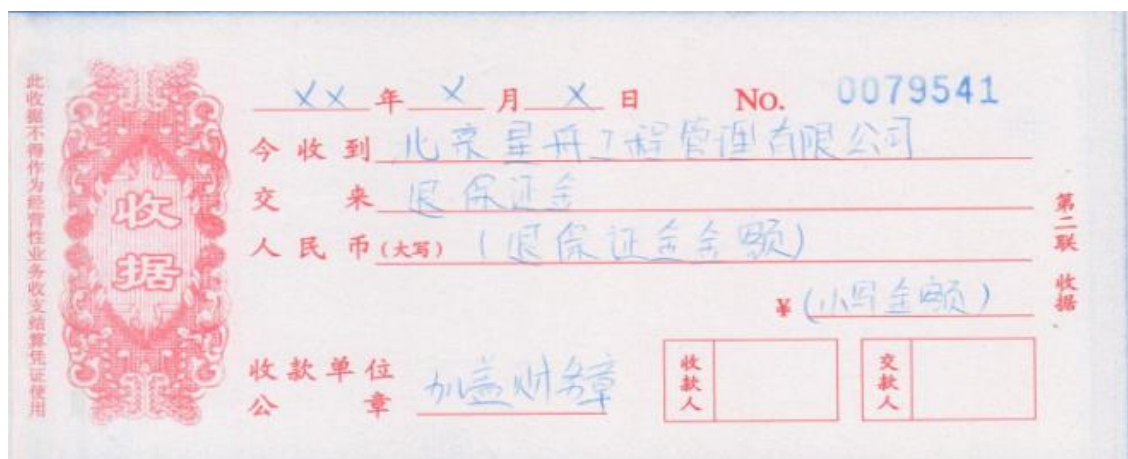 此收据不得作为经营性业务收支结算凭证使用
收据
XX年X月X日 No. 0079541
今收到 北京星舟工程管理有限公司
交来 退保证金
人民币(大写) (退保证金金额)
¥(小写金额)
第二联 收据
收款单位公章 加盖财务章
收款人
交款人